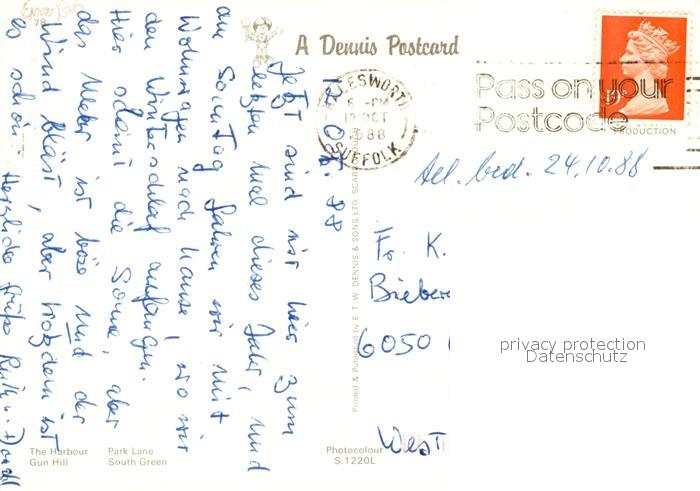 78
A Dennis Postcard
HALESWORTH
6 - PM
13 OCT
1988
SUFFOLK
Pass on your
Postcode
PRODUCTION
24.10.88
12. Okt. 88
Jetzt sind wir hier zum
letzten Mal dieses Jahr, und
am Sonntag fahren wir mit
Wohnwagen nach hause, wo wir
den Winterschlaf anfangen.
Hier scheint die Sonne, aber
das Meer ist böse und der
Wind bläst, aber trotzdem ist
es schön. Herzliche Grüße Ruth u.
Fr. K.
Bieber
6050
West
Printed & Published by E. T. W. DENNIS & SONS LTD. SCARBOROUGH
privacy protection
Datenschutz
The Harbour Park Lane
Gun Hill South Green
Photocolour
S.1220L